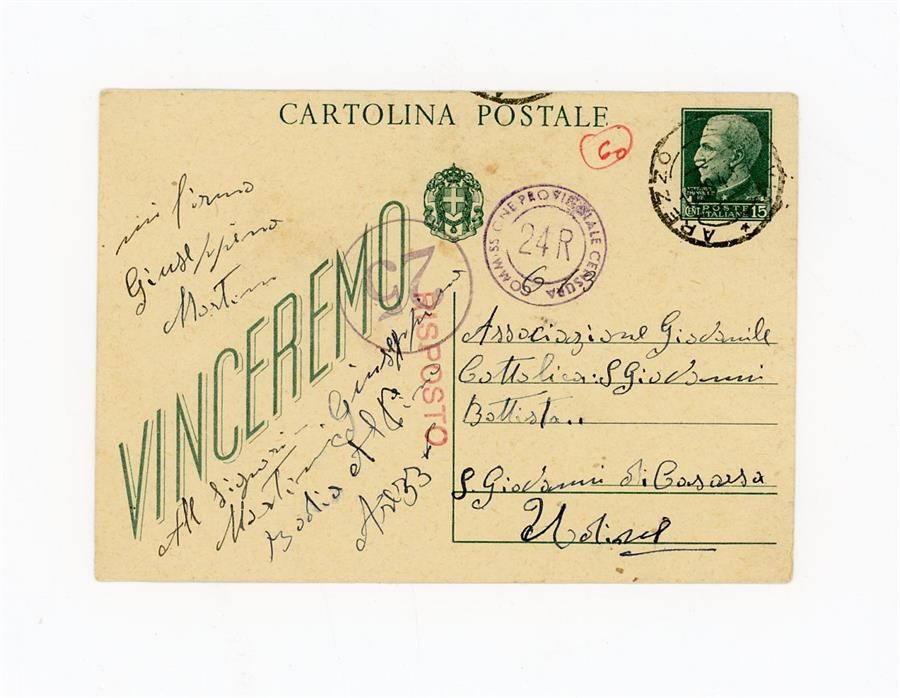 CARTOLINA POSTALE
60
AREZZO
POSTE
ITALIANE
CENT. 15
COMMISSIONE PROVINCIALE CENSURA
24R
mi firmo
Giuseppino
Martini
VINCEREMO
25
RISPOSTO
All Signor
Martini Giuseppino
Badia Al Pino
Arezzo
Associazione Giovanile
Cattolica: S Giovanni
Battista..
S. Giovanni di Casarsa
Udine